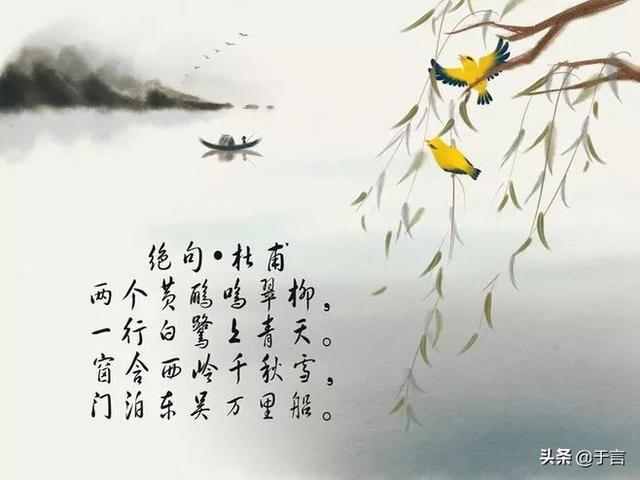 绝句•杜甫
两个黄鹂鸣翠柳，
一行白鹭上青天。
窗含西岭千秋雪，
门泊东吴万里船。
头条 @于言